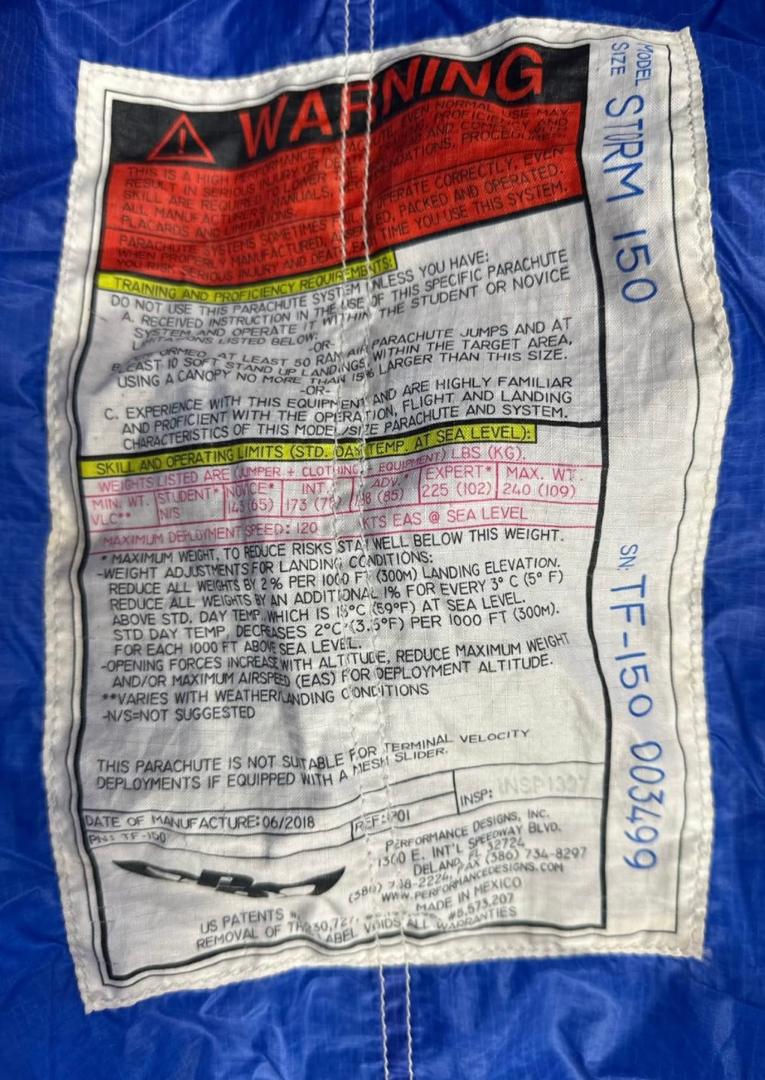 WARNING
THIS IS A HIGH PERFORMANCE PARACHUTE, EVEN NORMAL USE MAY
RESULT IN SERIOUS INJURY OR PROFICIENCY AND
SKILL ARE REQUIRED TO LOWER THE AND COMPLY WITH
ALL MANUFACTURER'S MANUALS, RECOMMENDATIONS, PROCEDURES
PLACARDS AND LIMITATIONS.
PARACHUTE SYSTEMS SOMETIMES FAIL TO OPERATE CORRECTLY, EVEN
WHEN PROPERLY MANUFACTURED, ASSEMBLED, PACKED AND OPERATED.
YOU RISK SERIOUS INJURY AND DEATH EACH TIME YOU USE THIS SYSTEM.
TRAINING AND PROFICIENCY REQUIREMENTS:
DO NOT USE THIS PARACHUTE SYSTEM UNLESS YOU HAVE:
A. RECEIVED INSTRUCTION IN THE USE OF THIS SPECIFIC PARACHUTE
SYSTEM AND OPERATE IT WITHIN THE STUDENT OR NOVICE
LIMITATIONS LISTED BELOW:
-OR-
B. PERFORMED AT LEAST 50 RAM AIR PARACHUTE JUMPS AND AT
LEAST 10 SOFT STAND UP LANDINGS WITHIN THE TARGET AREA,
USING A CANOPY NO MORE THAN 15% LARGER THAN THIS SIZE.
-OR-
C. EXPERIENCE WITH THIS EQUIPMENT AND ARE HIGHLY FAMILIAR
AND PROFICIENT WITH THE OPERATION, FLIGHT AND LANDING
CHARACTERISTICS OF THIS MODEL/SIZE PARACHUTE AND SYSTEM.
SKILL AND OPERATING LIMITS (STD. DAY TEMP. AT SEA LEVEL):
WEIGHTS LISTED ARE (JUMPER + CLOTHING + EQUIPMENT) LBS (KG).
MIN. WT. STUDENT* NOVICE* INT.* ADV.* EXPERT* MAX. WT.
VLC** N/S 143(65) 173 (78) (85) 225 (102) 240 (109)
MAXIMUM DEPLOYMENT SPEED: 120 KTS EAS @ SEA LEVEL
* MAXIMUM WEIGHT, TO REDUCE RISKS STAY WELL BELOW THIS WEIGHT.
-WEIGHT ADJUSTMENTS FOR LANDING CONDITIONS:
REDUCE ALL WEIGHTS BY 2% PER 1000 FT (300M) LANDING ELEVATION.
REDUCE ALL WEIGHTS BY AN ADDITIONAL 1% FOR EVERY 3° C (5° F)
ABOVE STD. DAY TEMP. WHICH IS 15°C (59°F) AT SEA LEVEL.
STD DAY TEMP. DECREASES 2°C (3.5°F) PER 1000 FT (300M).
FOR EACH 1000 FT ABOVE SEA LEVEL.
-OPENING FORCES INCREASE WITH ALTITUDE, REDUCE MAXIMUM WEIGHT
AND/OR MAXIMUM AIRSPEED (EAS) FOR DEPLOYMENT ALTITUDE.
**VARIES WITH WEATHER/LANDING CONDITIONS
-N/S=NOT SUGGESTED
THIS PARACHUTE IS NOT SUITABLE FOR TERMINAL VELOCITY
DEPLOYMENTS IF EQUIPPED WITH A MESH SLIDER.
INSP: INSP1327
DATE OF MANUFACTURE: 06/2018 REF:
PN: TF-150
PERFORMANCE DESIGNS, INC.
1300 E. INT'L SPEEDWAY BLVD.
DELAND, FL 32724
(386) 738-2224, FAX (386) 734-8297
WWW.PERFORMANCEDESIGNS.COM
MADE IN MEXICO
US PATENTS #5,573,207
REMOVAL OF THIS LABEL VOIDS ALL WARRANTIES
MODEL STORM 150
SIZE
SN: TF-150 003499